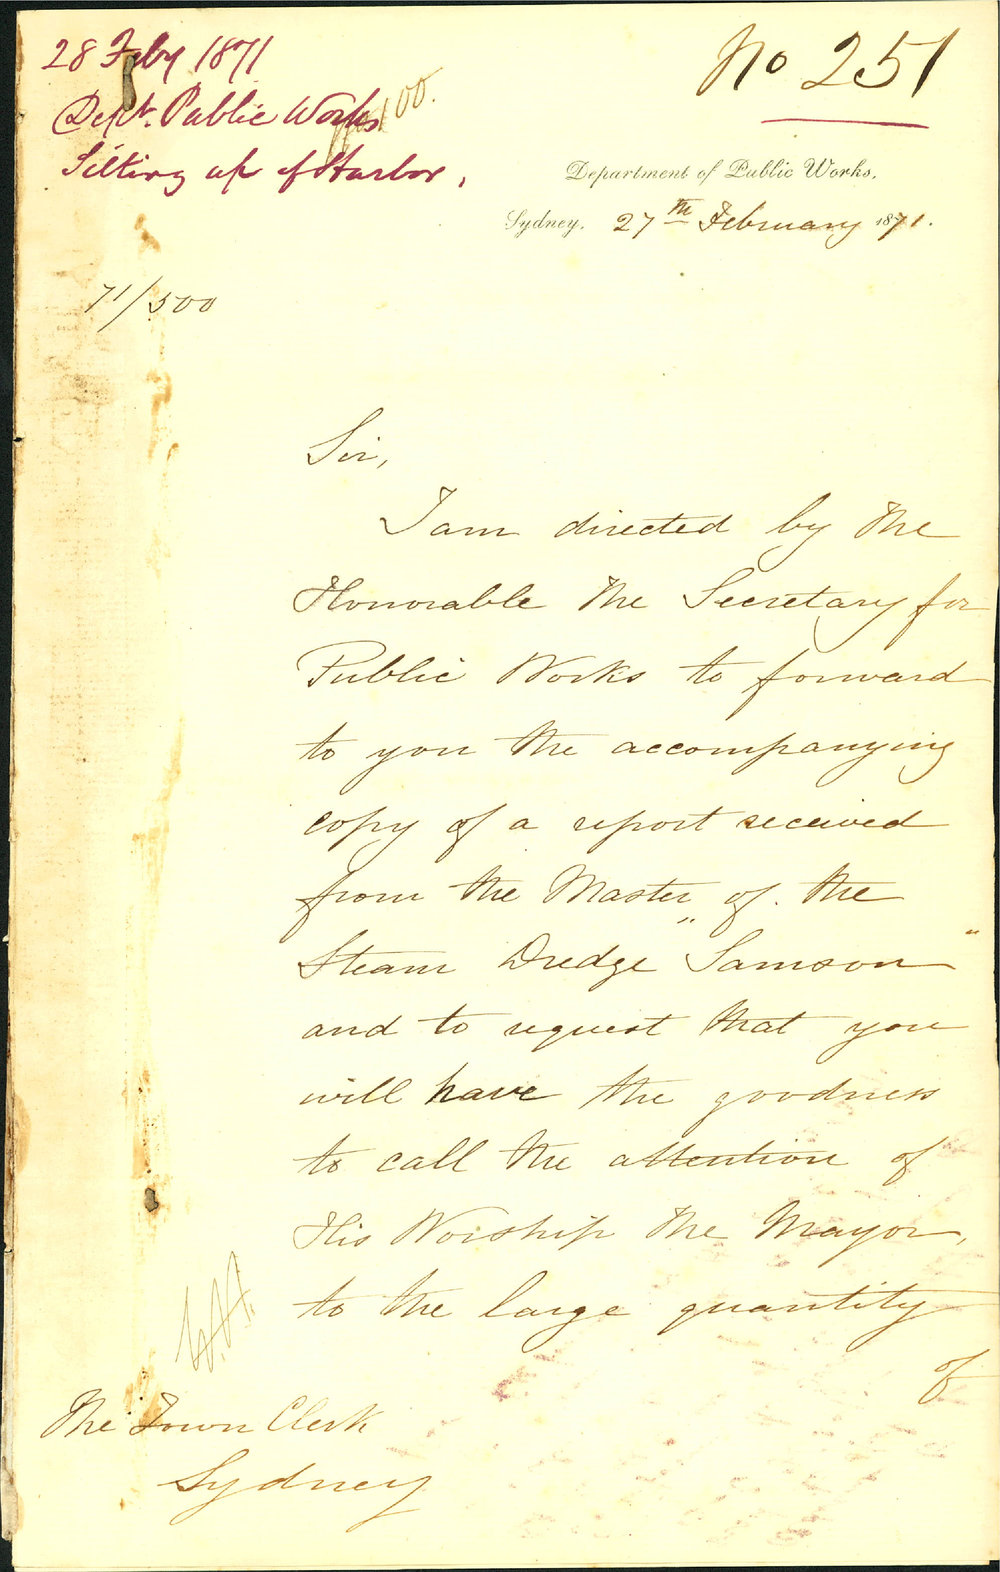 28 Feby 1871
Dept. Public Works
Silting up of Harbor,
No 251
Department of Public Works,
Sydney, 27th February 1871.
71/500
Sir,
I am directed by the
Honorable the Secretary for
Public Works to forward
to you the accompanying
copy of a report received
from the Master of the
Steam Dredge "Samson"
and to request that you
will have the goodness
to call the attention of
His Worship the Mayor,
to the large quantity
of
The Town Clerk
Sydney